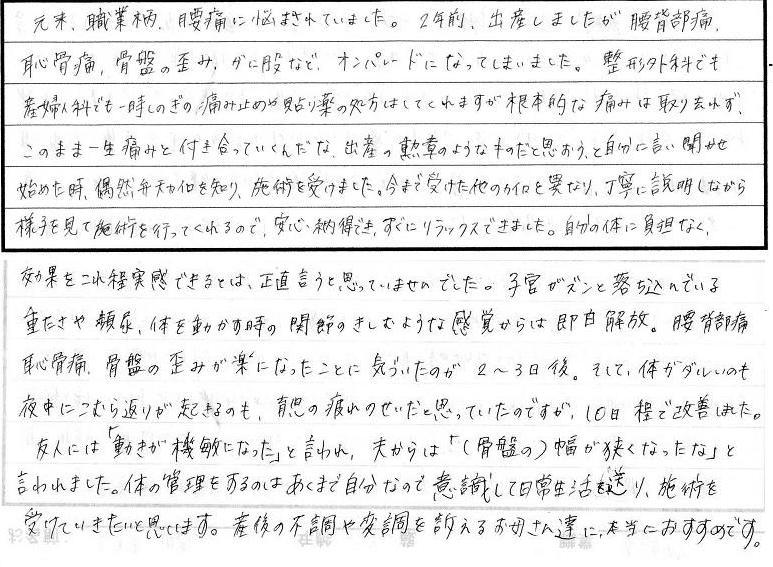 元来、職業柄、腰痛に悩まされていました。2年前、出産しましたが腰背部痛、
恥骨痛、骨盤の歪み、がに股など、オンパレードになってしまいました。整形外科でも
産婦人科でも一時しのぎの痛み止めや貼り薬の処方はしてくれますが根本的な痛みは取り去れず、
このまま一生痛みと付き合っていくんだな、出産の勲章のようなものだと思おう、と自分に言い聞かせ
始めた時、偶然弁天カイロを知り、施術を受けました。今まで受けた他のカイロと異なり、丁寧に説明しながら
様子を見て施術を行ってくれるので、安心・納得でき、すぐにリラックスできました。自分の体に負担なく、
効果をこれ程実感できるとは、正直言うと思っていませんでした。子宮がズンと落ち込んでいる
重たさや頻尿、体を動かす時の関節のきしむような感覚からは即日解放。腰背部痛
恥骨痛、骨盤の歪みが楽になったことに気づいたのが2〜3日後。そして、体がダルいのも
夜中にこむら返りが起きるのも、育児の疲れのせいだと思っていたのですが、10日程で改善しました。
友人には「動きが機敏になった」と言われ、夫からは「(骨盤の)幅が狭くなったな」と
言われました。体の管理をするのはあくまで自分なので意識して日常生活を送り、施術を
受けていきたいと思います。産後の不調や変調を訴えるお母さん達に、本当におすすめです。